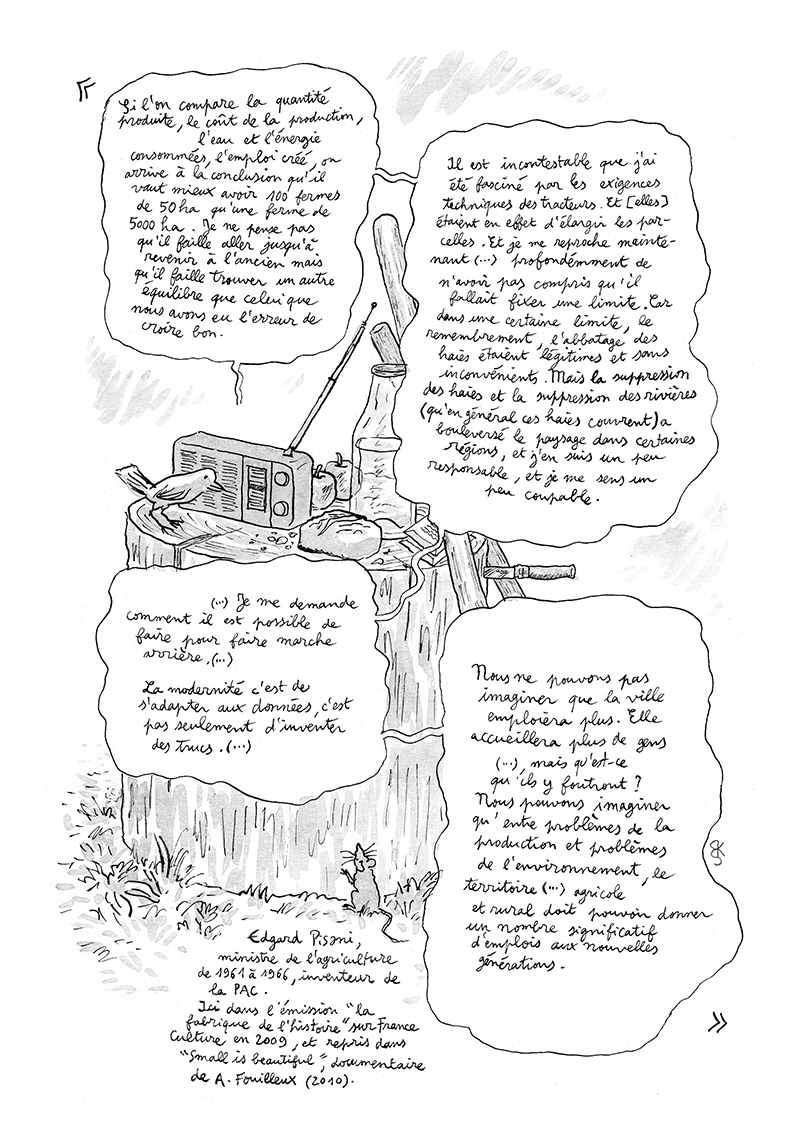 «
Si l'on compare la quantité
produite, le coût de la production,
l'eau et l'énergie
consommées, l'emploi créé, on
arrive à la conclusion qu'il
vaut mieux avoir 100 fermes
de 50 ha qu'une ferme de
5000 ha. Je ne pense pas
qu'il faille aller jusqu'à
revenir à l'ancien mais
qu'il faille trouver un autre
équilibre que celui que
nous avons eu l'erreur de
croire bon.
Il est incontestable que j'ai
été fasciné par les exigences
techniques des tracteurs. Et [elles]
étaient en effet d'élargir les par-
celles. Et je me reproche mainte-
nant (...) profondémment de
n'avoir pas compris qu'il
fallait fixer une limite. Car
dans une certaine limite, le
remembrement, l'abbatage des
haies étaient légitimes et sans
inconvénients. Mais la suppression
des haies et la suppression des rivières
(qu'en général ces haies couvrent) a
bouleversé le paysage dans certaines
régions, et j'en suis un peu
responsable, et je me sens un
peu coupable.
(...) Je me demande
comment il est possible de
faire pour faire marche
arrière. (...)
La modernité c'est de
s'adapter aux données, c'est
pas seulement d'inventer
des trucs. (...)
Nous ne pouvons pas
imaginer que la ville
emploiera plus. Elle
accueillera plus de gens
(...), mais qu'est-ce
qu'ils y foutront ?
Nous pouvons imaginer
qu'entre problèmes de la
production et problèmes
de l'environnement, le
territoire (...) agricole
et rural doit pouvoir donner
un nombre significatif
d'emplois aux nouvelles
générations.
»
Edgard Pisani,
ministre de l'agriculture
de 1961 à 1966, inventeur de
la PAC.
Ici dans l'émission "la
fabrique de l'histoire" sur France
Culture en 2009, et repris dans
"Small is beautiful", documentaire
de A. Fouilleux (2010).